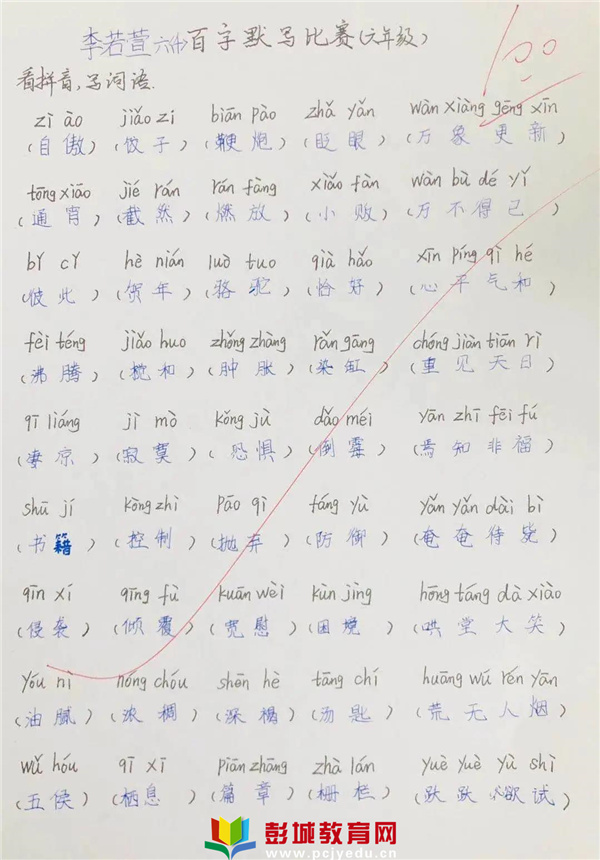 李若萱 六(1) 百字默写比赛(六年级)
100
看拼音,写词语.
zì ào jiǎo zi biān pào zhǎ yǎn wàn xiàng gēng xīn
(自傲) (饺子) (鞭炮) (眨眼) (万象更新)
tōng xiāo jié rán rán fàng xiǎo fàn wàn bù dé yǐ
(通宵) (截然) (燃放) (小贩) (万不得已)
bǐ cǐ hè nián luò tuo qià hǎo xīn píng qì hé
(彼此) (贺年) (骆驼) (恰好) (心平气和)
fèi téng jiǎo huo zhǒng zhàng rǎn gāng chóng jiàn tiān rì
(沸腾) (搅和) (肿胀) (染缸) (重见天日)
qī liáng jì mò kǒng jù dǎo méi yān zhī fēi fú
(凄凉) (寂寞) (恐惧) (倒霉) (焉知非福)
shū jí kòng zhì pāo qì fáng yù yǎn yǎn dài bì
(书籍) (控制) (抛弃) (防御) (奄奄待毙)
qīn xí qīng fù kuān wèi kùn jìng hōng táng dà xiào
(侵袭) (倾覆) (宽慰) (困境) (哄堂大笑)
yóu nì nóng chóu shēn hè tāng chí huāng wú rén yān
(油腻) (浓稠) (深褐) (汤匙) (荒无人烟)
wǔ hóu qī xī piān zhāng zhà lán yuè yuè yù shì
(五侯) (栖息) (篇章) (栅栏) (跃跃欲试)
彭城教育网
www.pcjyedu.cn